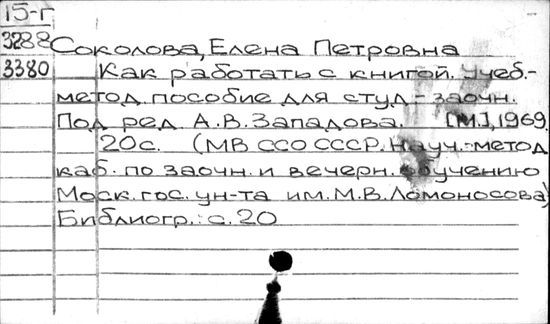 15-г
3288 Соколова, Елена Петровна
3380 Как работать с книгой. Учеб.-
метод. пособие для студ.-заочн.
Под ред. А.В. Западова. [М.], 1969
20с. (МВ ССО СССР. Науч.-метод.
каб. по заочн. и вечерн. обучению
Моск. гос. ун-та им. М.В. Ломоносова)
Библиогр.: с. 20